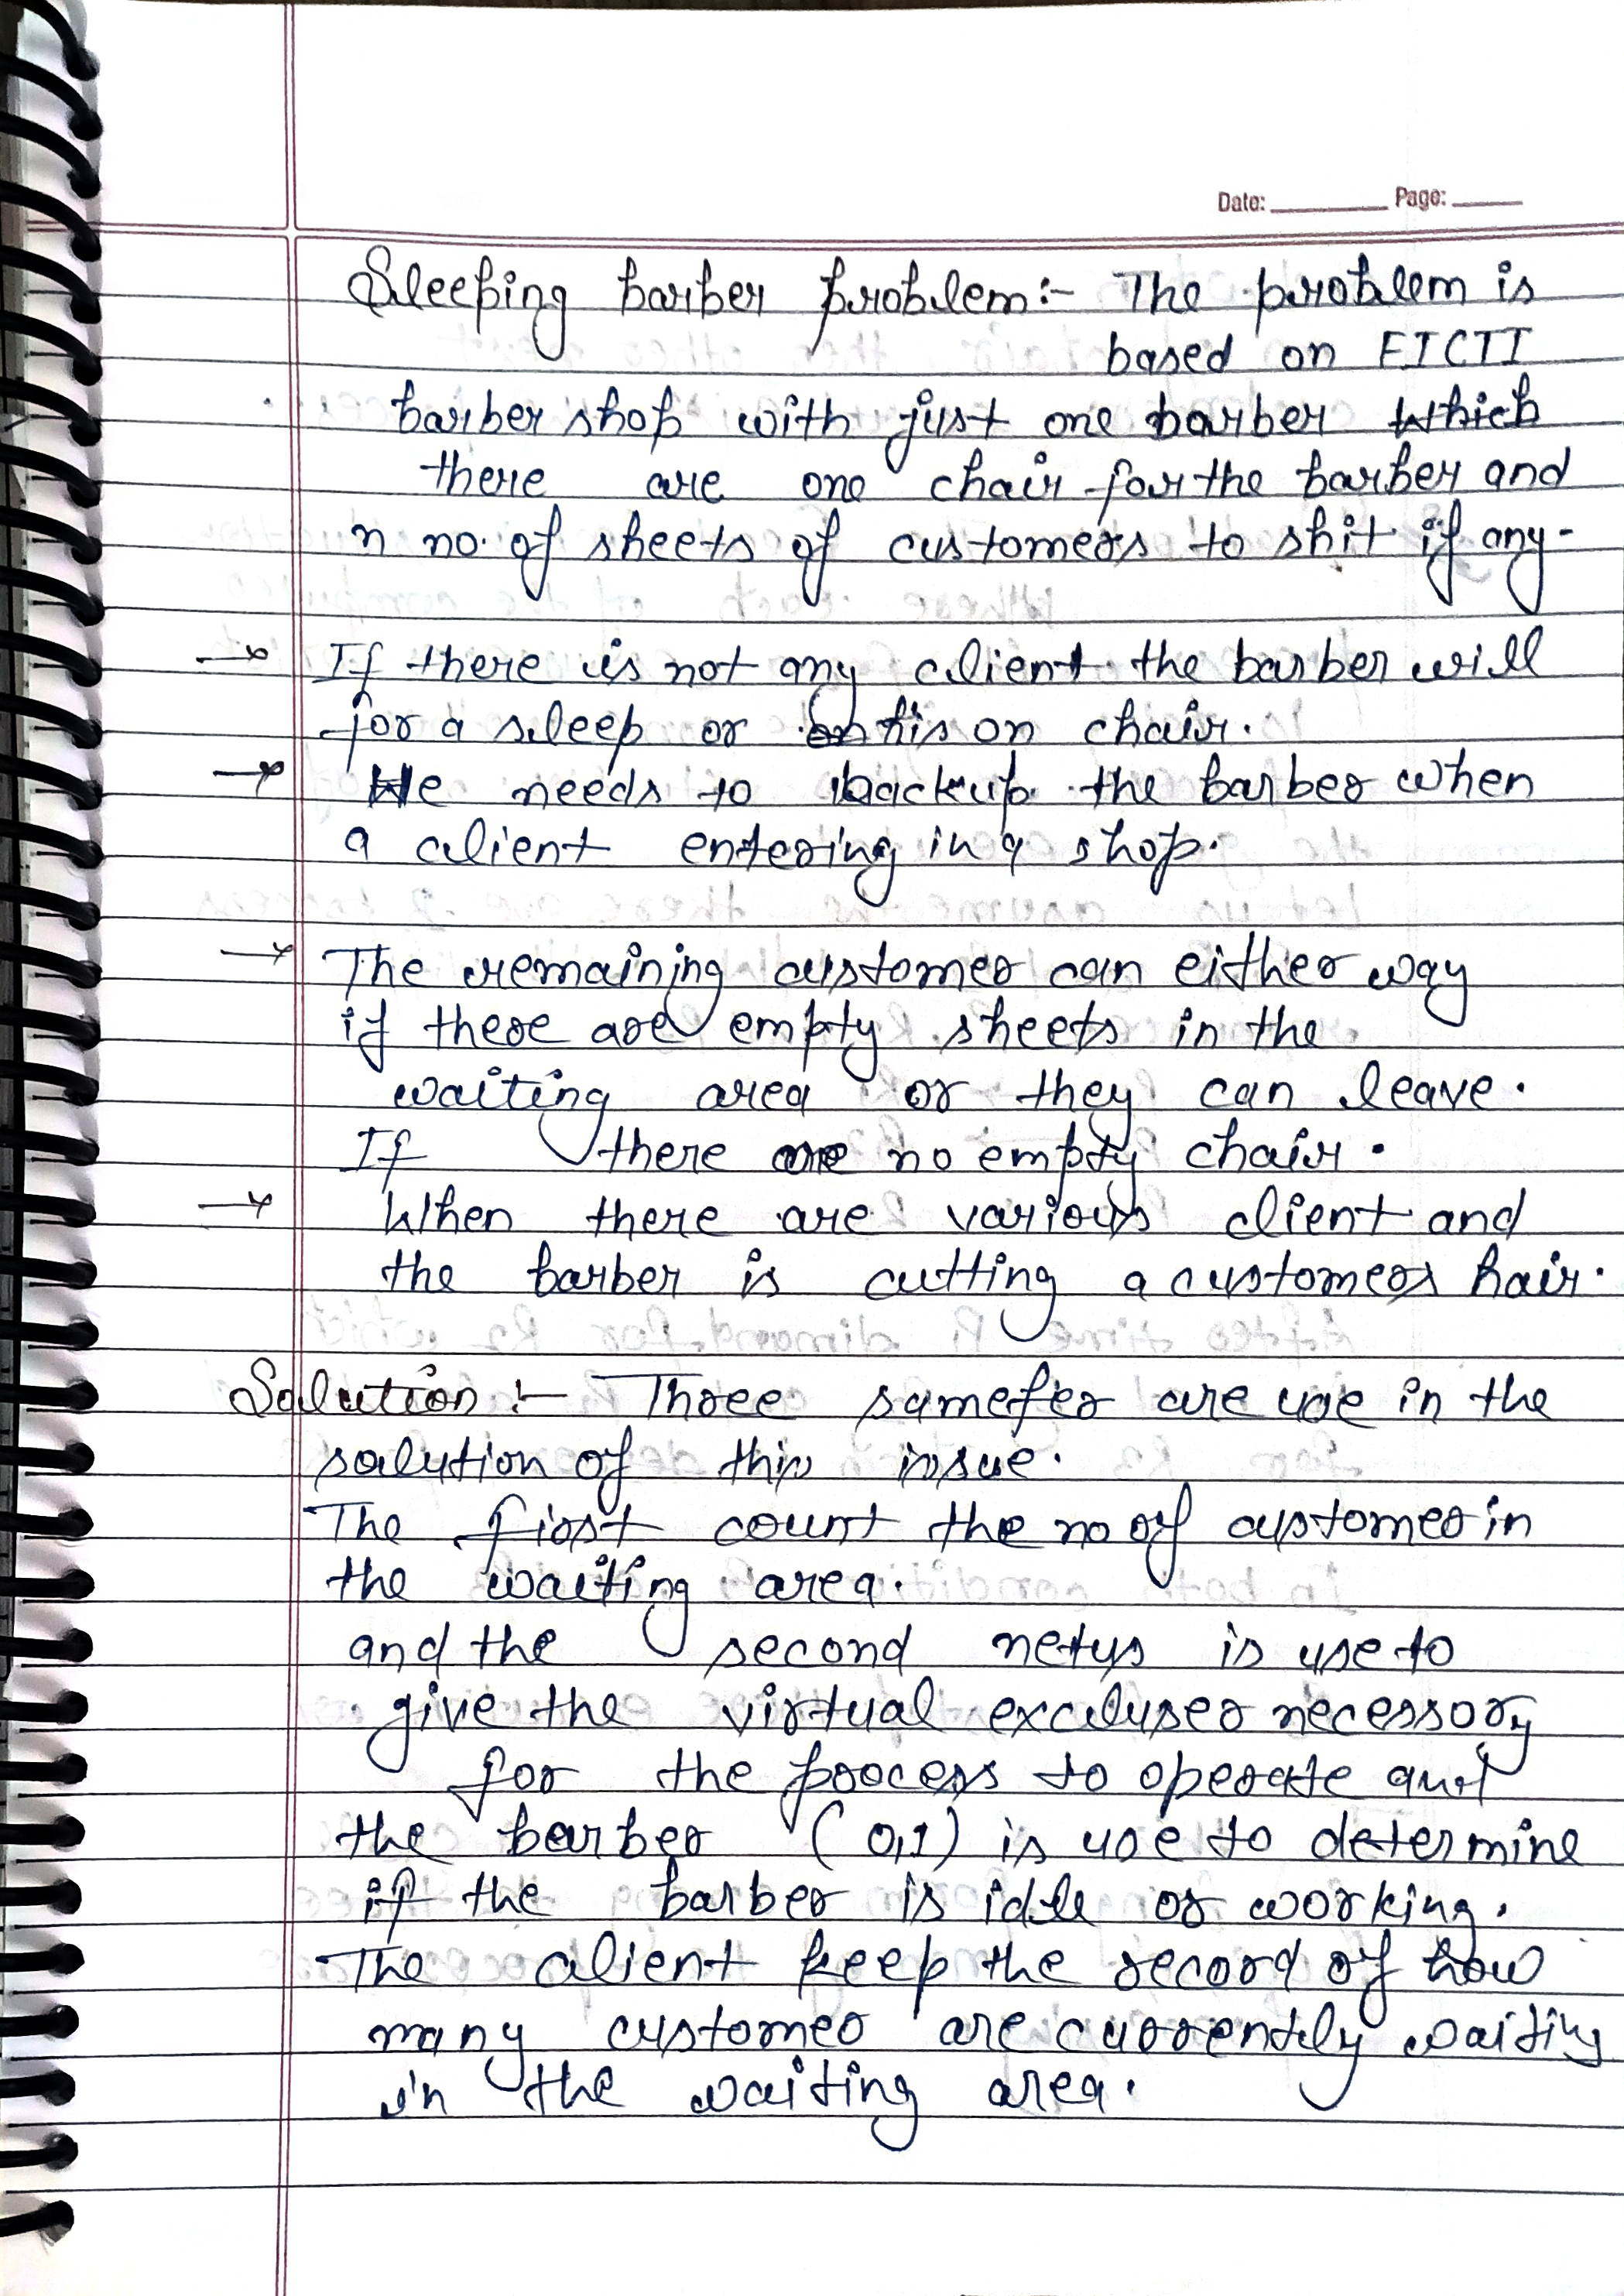 Date: Page:
Sleeping barber problem:- The problem is
based on FICTI
barber shop with just one barber which
there are one chair for the barber and
n no. of sheets of customers to shit if any-
If there is not any client the barber will
for a sleep or on his on chair.
He needs to backup the barber when
a client entering in a shop.
The remaining customer can either way
if there are empty sheets in the
waiting area or they can leave.
If there are no empty chair.
When there are various client and
the barber is cutting a customers hair.
Solution :- Three samefer are use in the
solution of this issue.
The first count the no of customer in
the waiting area.
and the second netus is use to
give the virtual excluser necessory
for the process to operate
the barber (0,1) is use to determine
if the barber is idle or working.
The client keep the record of how
many customer are currently waiting
in the waiting area.